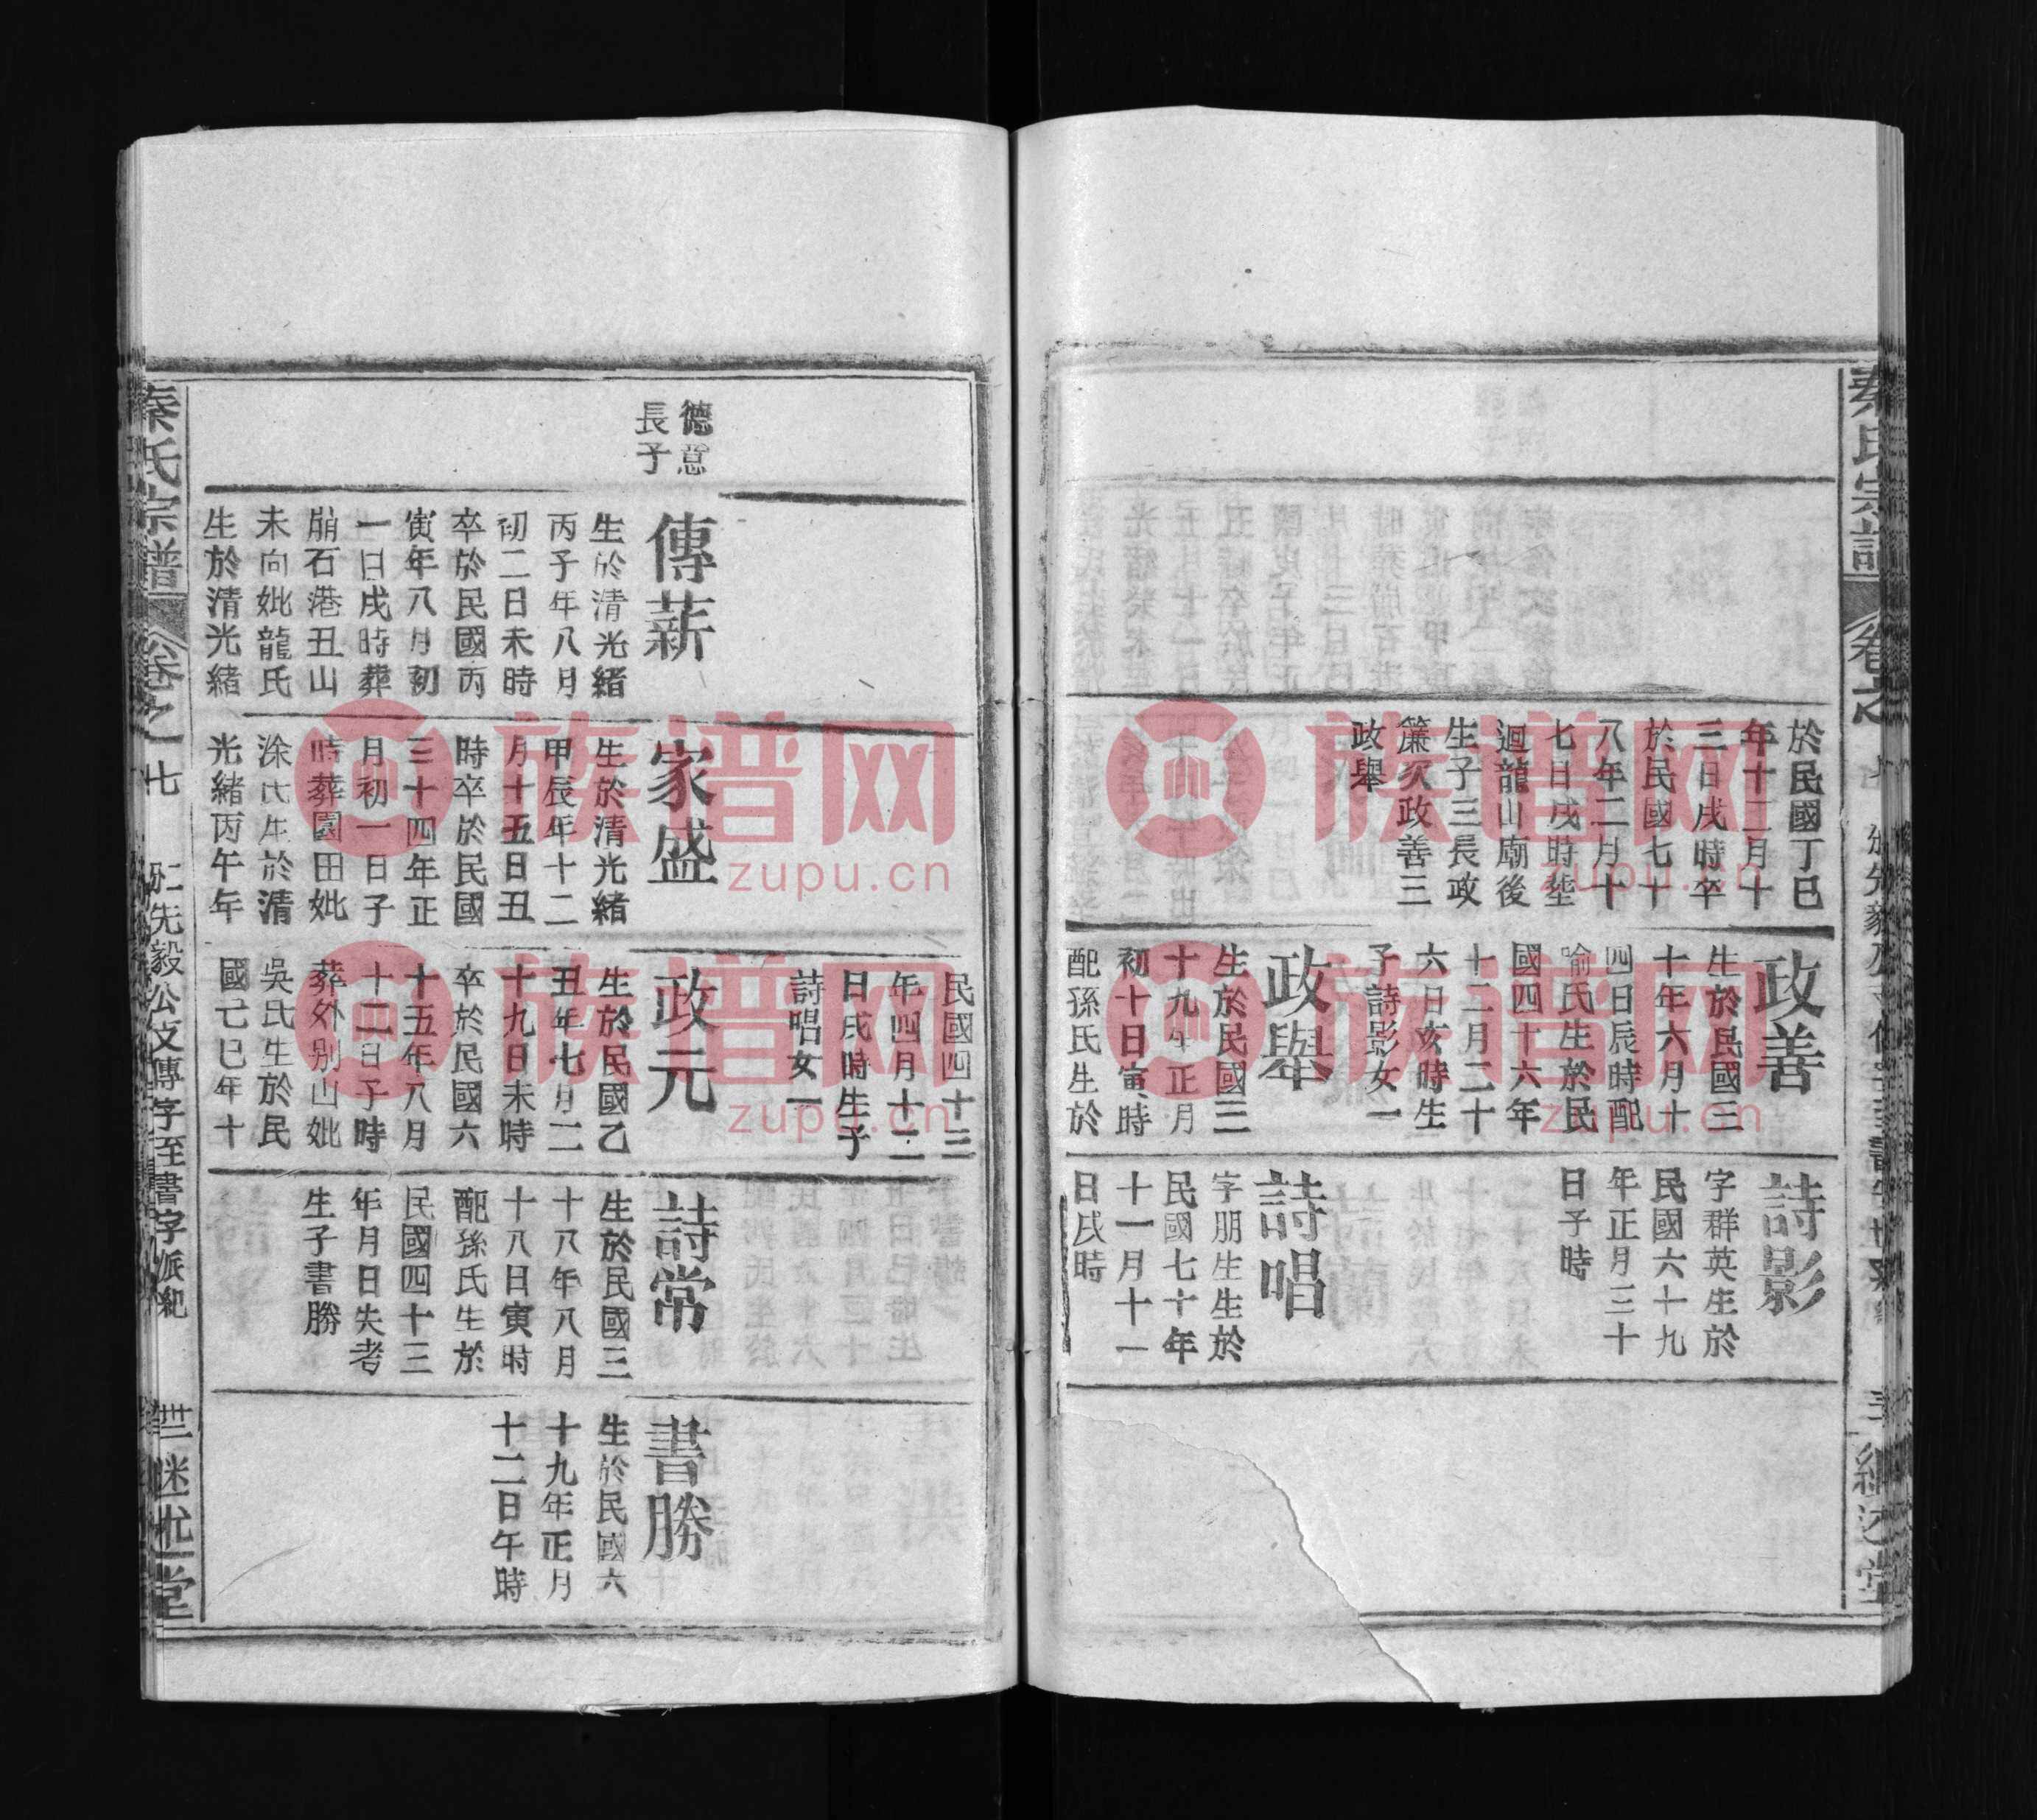 秦氏宗譜
卷之
於民國丁巳
年十二月十
三日戌時卒
於民國七十
八年二月十
七日戌時塟
迴龍山廟後
生子三長政
簾次政善三
政舉
政善
生於民國三
十年六月十
四日辰時配
喻氏生於民
國四十六年
十二月二十
六日亥時生
子詩影女一
政舉
生於民國三
十九年正月
初十日寅時
配孫氏生於
詩影
字群英生於
民國六十九
年正月三十
日子時
詩唱
字朋生生於
民國七十年
十一月十一
日戌時
德意
長子
傳薪
生於清光緒
丙子年八月
初二日未時
卒於民國丙
寅年八月初
一日戌時葬
崩石港丑山
未向妣龍氏
生於清光緒
家盛
生於清光緒
甲辰年十二
月十五日丑
時卒於民國
三十四年正
月初一日子
時葬園田妣
涂氏生於清
光緒丙午年
民國四十三
年四月十二
日戌時生子
詩唱女一
政元
生於民國乙
丑年七月二
十九日未時
卒於民國六
十五年八月
十二日子時
葬外别山妣
吳氏生於民
國己巳年十
詩常
生於民國三
十八年八月
十八日寅時
配孫氏生於
民國四十三
年月日失考
生子書勝
書勝
生於民國六
十九年正月
十二日午時
秦氏宗譜
卷之七
先毅公文傳字至書字派紀
堂
族谱网
zupu.cn
族谱网
zupu.cn
族谱网
zupu.cn
族谱网
zupu.cn